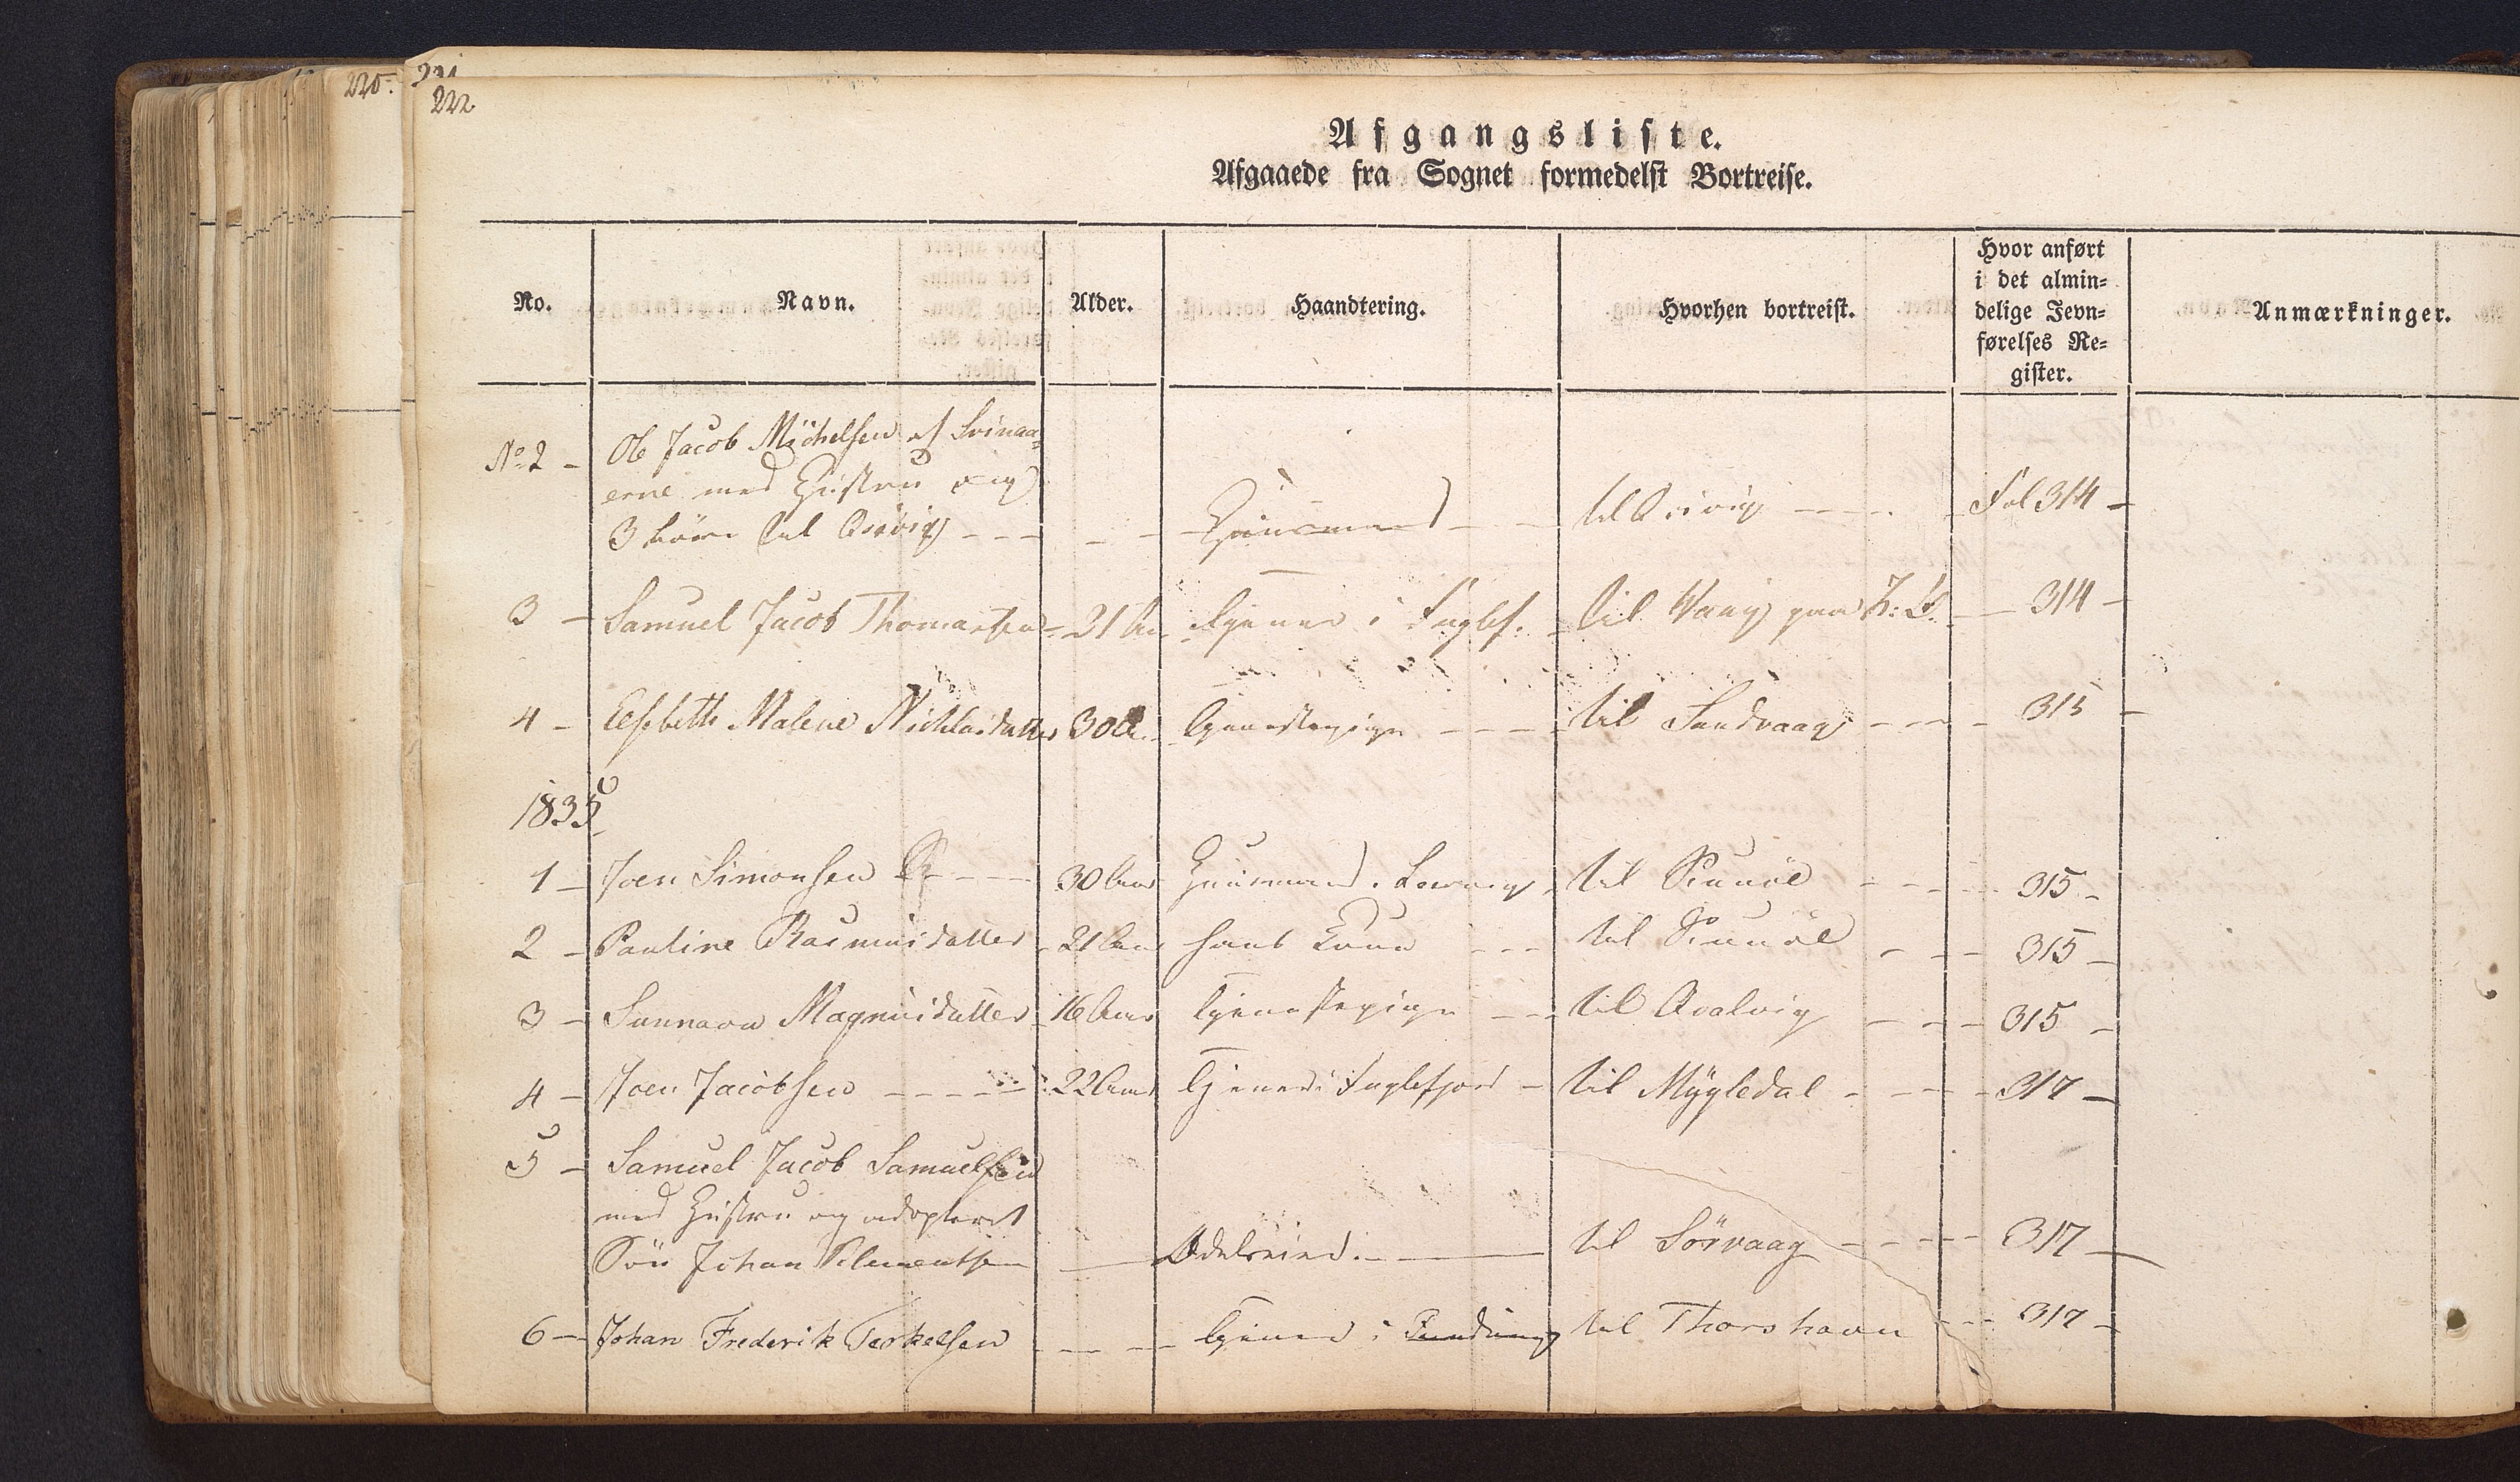 220.
221
222
Afgangsliste.
Afgaaede fra Sognet formedelst Bortreise.
No. Navn. Alder. Haandtering. Hvorhen bortreist. Hvor anført i det almindelige Jevnførelses Register. Anmærkninger.
No 2 - Ole Jacob Michelsen af Svinaa=
erne med Hustru og
3 børn til Qvivig - - - Huusmand - - til Qvivig - - - Fol 314 -
3 - Samuel Jacob Thomassen - 21 Aar Tjener i Fuglef. til Waag paa - 314 -
4 - Elsebeth Malene Nichlasdatter 30 A. Tjenestepige - - - til Sandvaag - - - 315 -
1835
1 - Joen Simonsen - - - 30 Aar Huusmand i til - - - 315 -
2 - Pauline Rasmusdatter - 21 Aar hans Kone - - - til - - - 315 -
3 - Sunnava Magnusdatter - 16 Aar Tjenestepige - - til Qvalvig - - - 315 -
4 - Joen Jacobsen - - - - - 22 Aar Tjener i Fuglefjord - til Mygledal - - - 317 -
5 - Samuel Jacob Samuelsen
med Hustru og adopteret
Søn Johan Klementsen - Odelsmand - til Sörvaag - - - - 317 -
6 - Johan Frederik Terkelsen - - - Tjener i til Thorshavn - - - 317 -